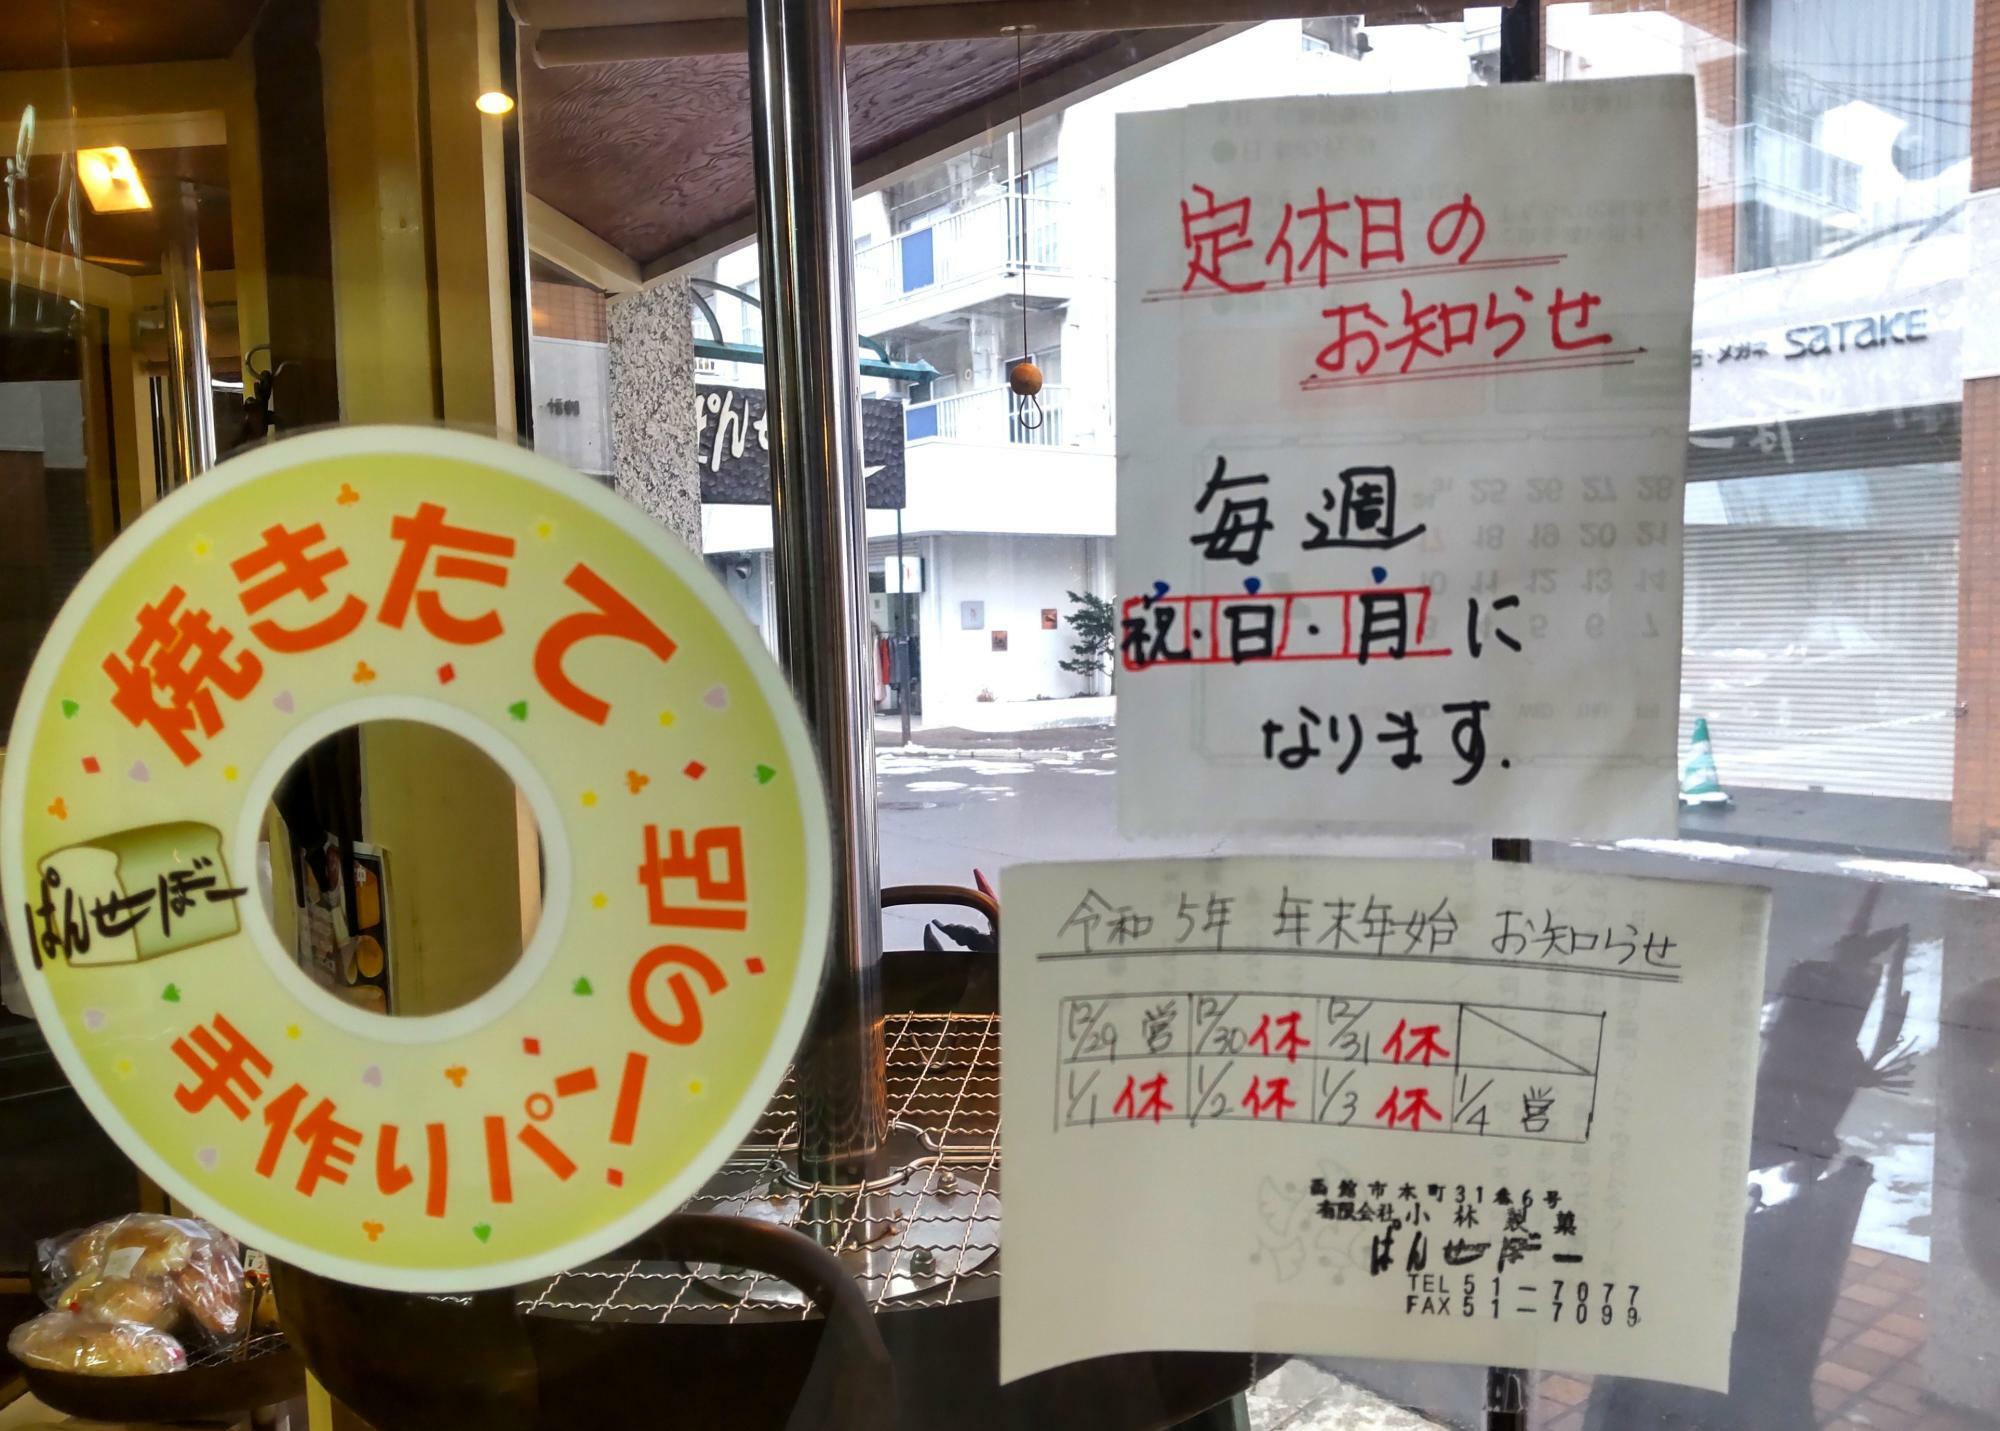 焼きたて
ぱんせーぼー
手作りパン
定休日の
お知らせ
毎週
祝・日・月に
なります.
SATAKE
メガネ
令和5年 年末年始 お知らせ
12/29 営 12/30 休 12/31 休
1/1 休 1/2 休 1/3 休 1/4 営
函館市本町31番6号
有限会社小林製菓
ぱんせーぼー
TEL 51-7077
FAX 51-7099